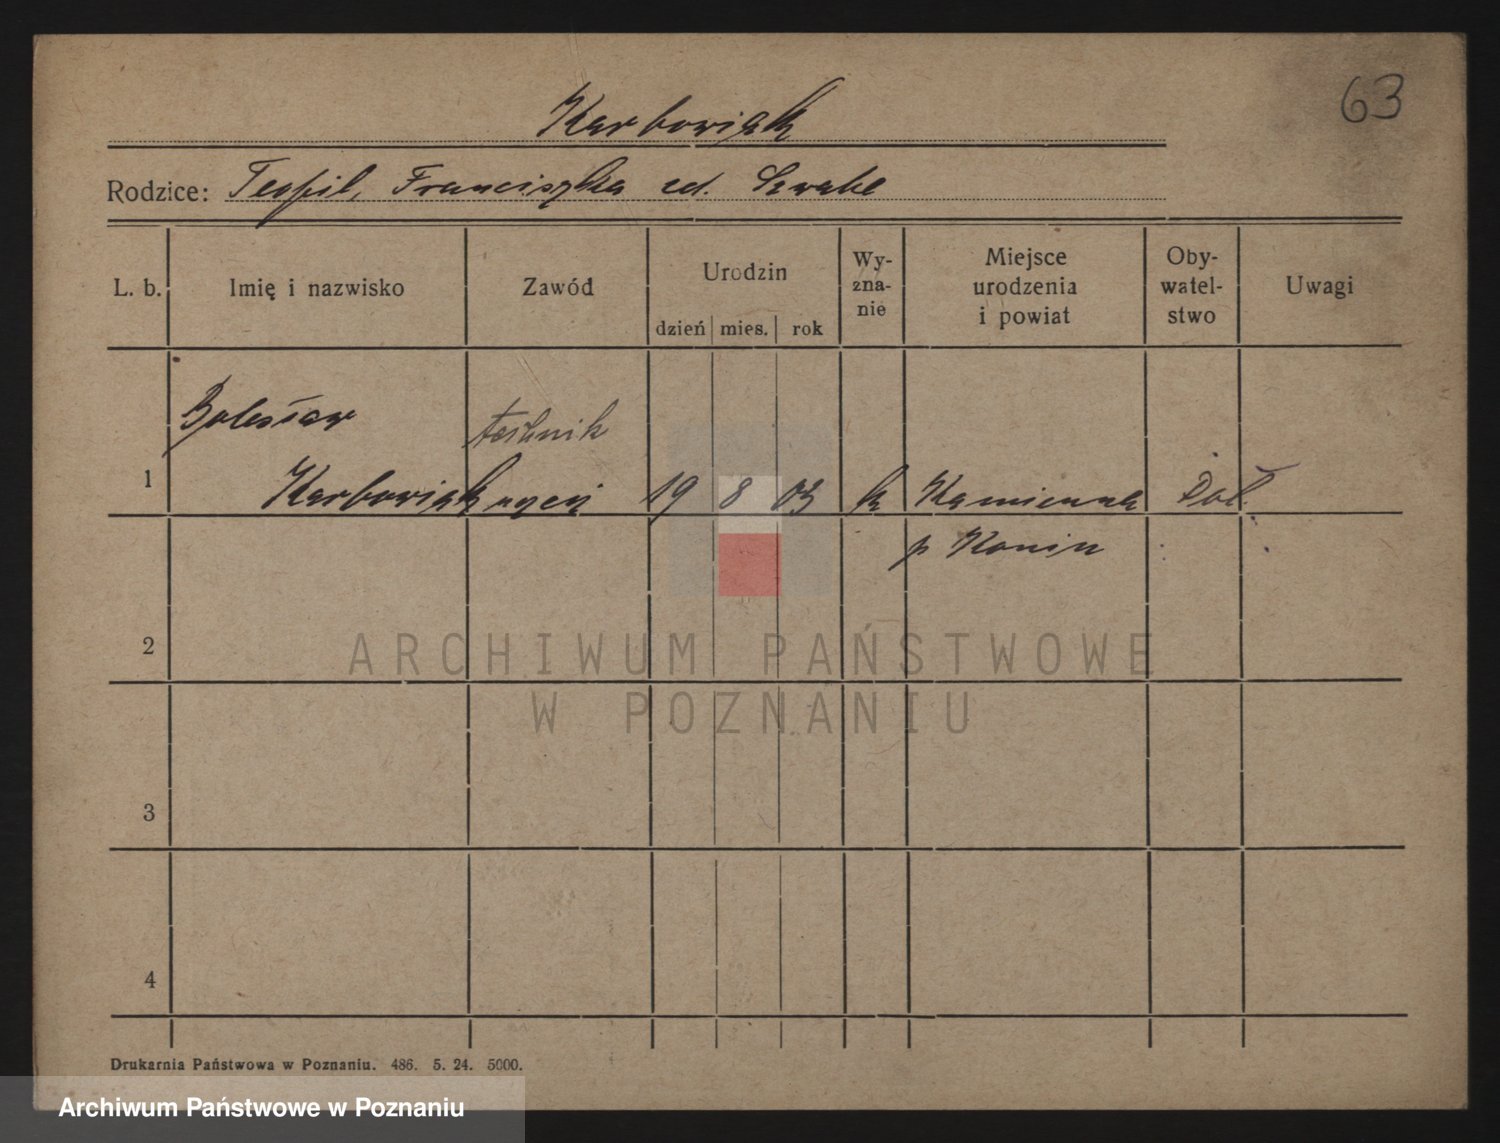 63
Karbowiak
Rodzice: Teofil, Franciszka zd. Szwabe
L. b. Imię i nazwisko Zawód Urodzin dzień mies. rok Wy-zna-nie Miejsce urodzenia i powiat Oby-watel-stwo Uwagi
Bolesław technik
1 Karbowiak uczeń 19 8 03 k Kamienna Pol.
p Konin
2
ARCHIWUM PAŃSTWOWE
W POZNANIU
3
4
Drukarnia Państwowa w Poznaniu. 486. 5. 24. 5000.
Archiwum Państwowe w Poznaniu